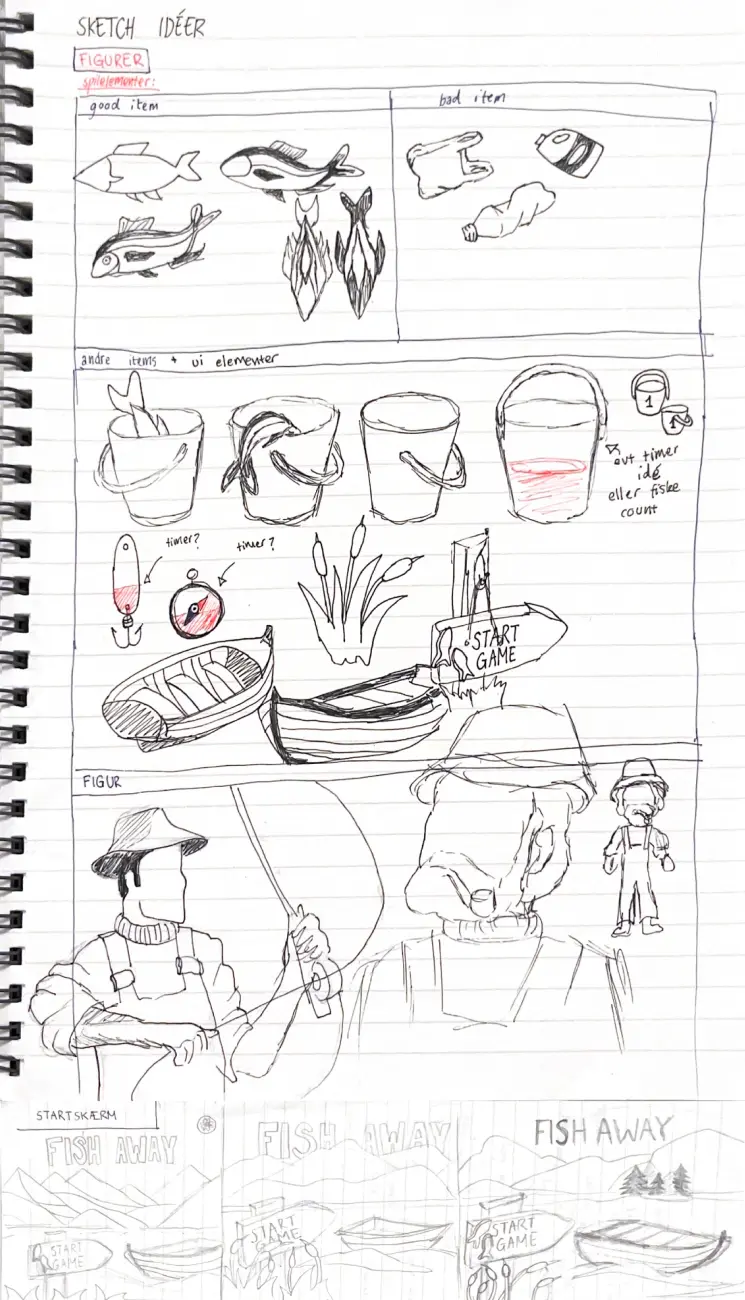 SKETCH IDÉER
FIGURER
spilelementer:
good item
bad item
andre items + ui elementer
1
1
evt timer
idé
eller fiske
count
timer?
timer?
START
GAME
FIGUR
STARTSKÆRM
FISH AWAY
START
GAME
FISH AWAY
START
GAME
FISH AWAY
START
GAME